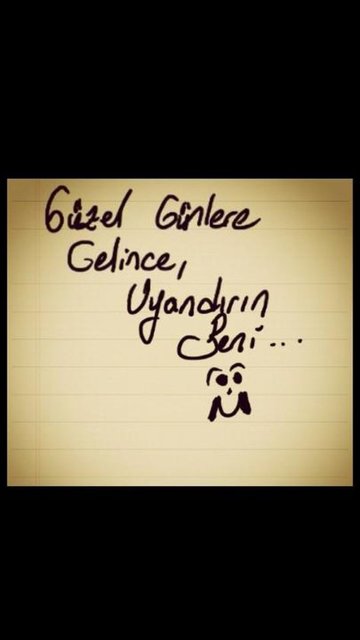 Güzel Günlere
Gelince,
Uyandırın
Beni...